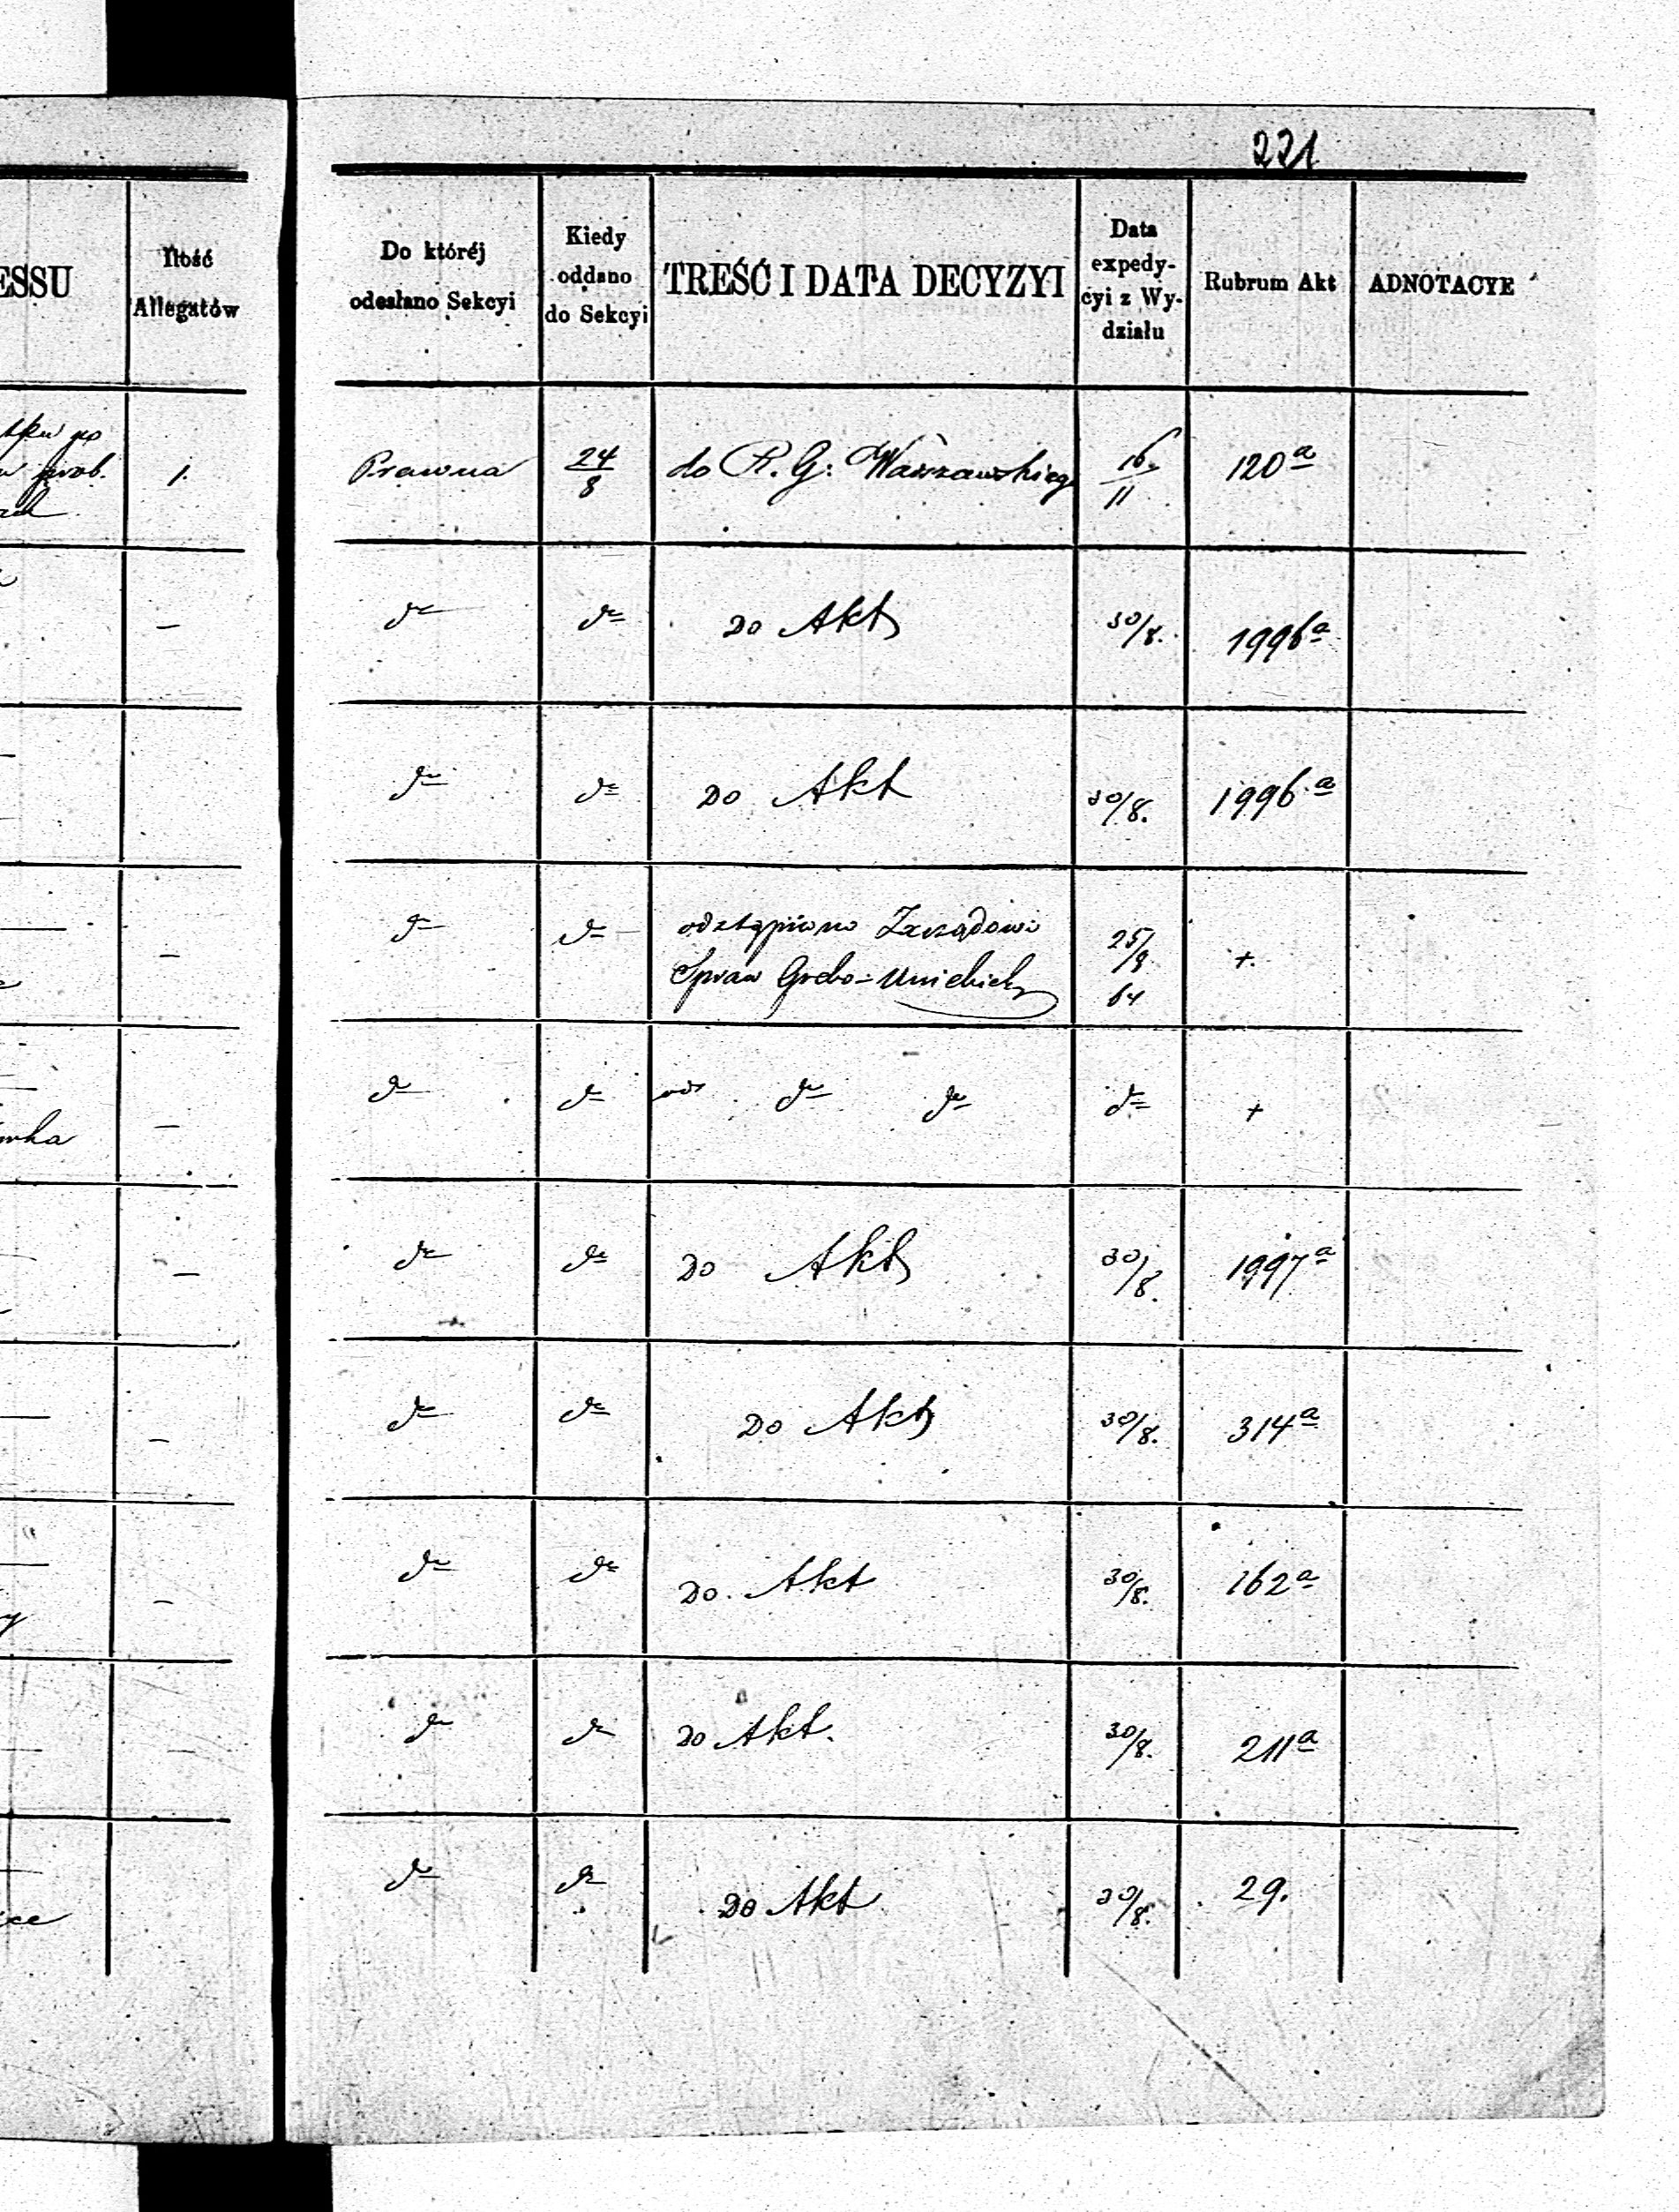 221
ESSU
Ilość
Allegatów
Do któréj
odesłano Sekcyi
Kiedy
oddano
do Sekcyi
TREŚĆ I DATA DECYZYI
Data
expedy-
cyi z Wy-
działu
Rubrum Akt
ADNOTACYE
prob.
1.
Prawna
24/8
do R. G. Warszawskiego
16/11
120 a
—
do
do
Do Akt
30/8.
1996 a
do
do
Do Akt
30/8.
1996 a
—
do
do
odstąpiono Zarządowi
Spraw Greko-Unickich
25/8
64
+.
—
do
do
od do do
do
+
—
do
do
Do Akt
30/8.
1997 a
—
do
do
Do Akt
30/8.
314 a
—
do
do
Do. Akt
30/8.
162 a
—
do
do
Do Akt.
30/8.
211 a
do
do
Do Akt
30/8.
29.